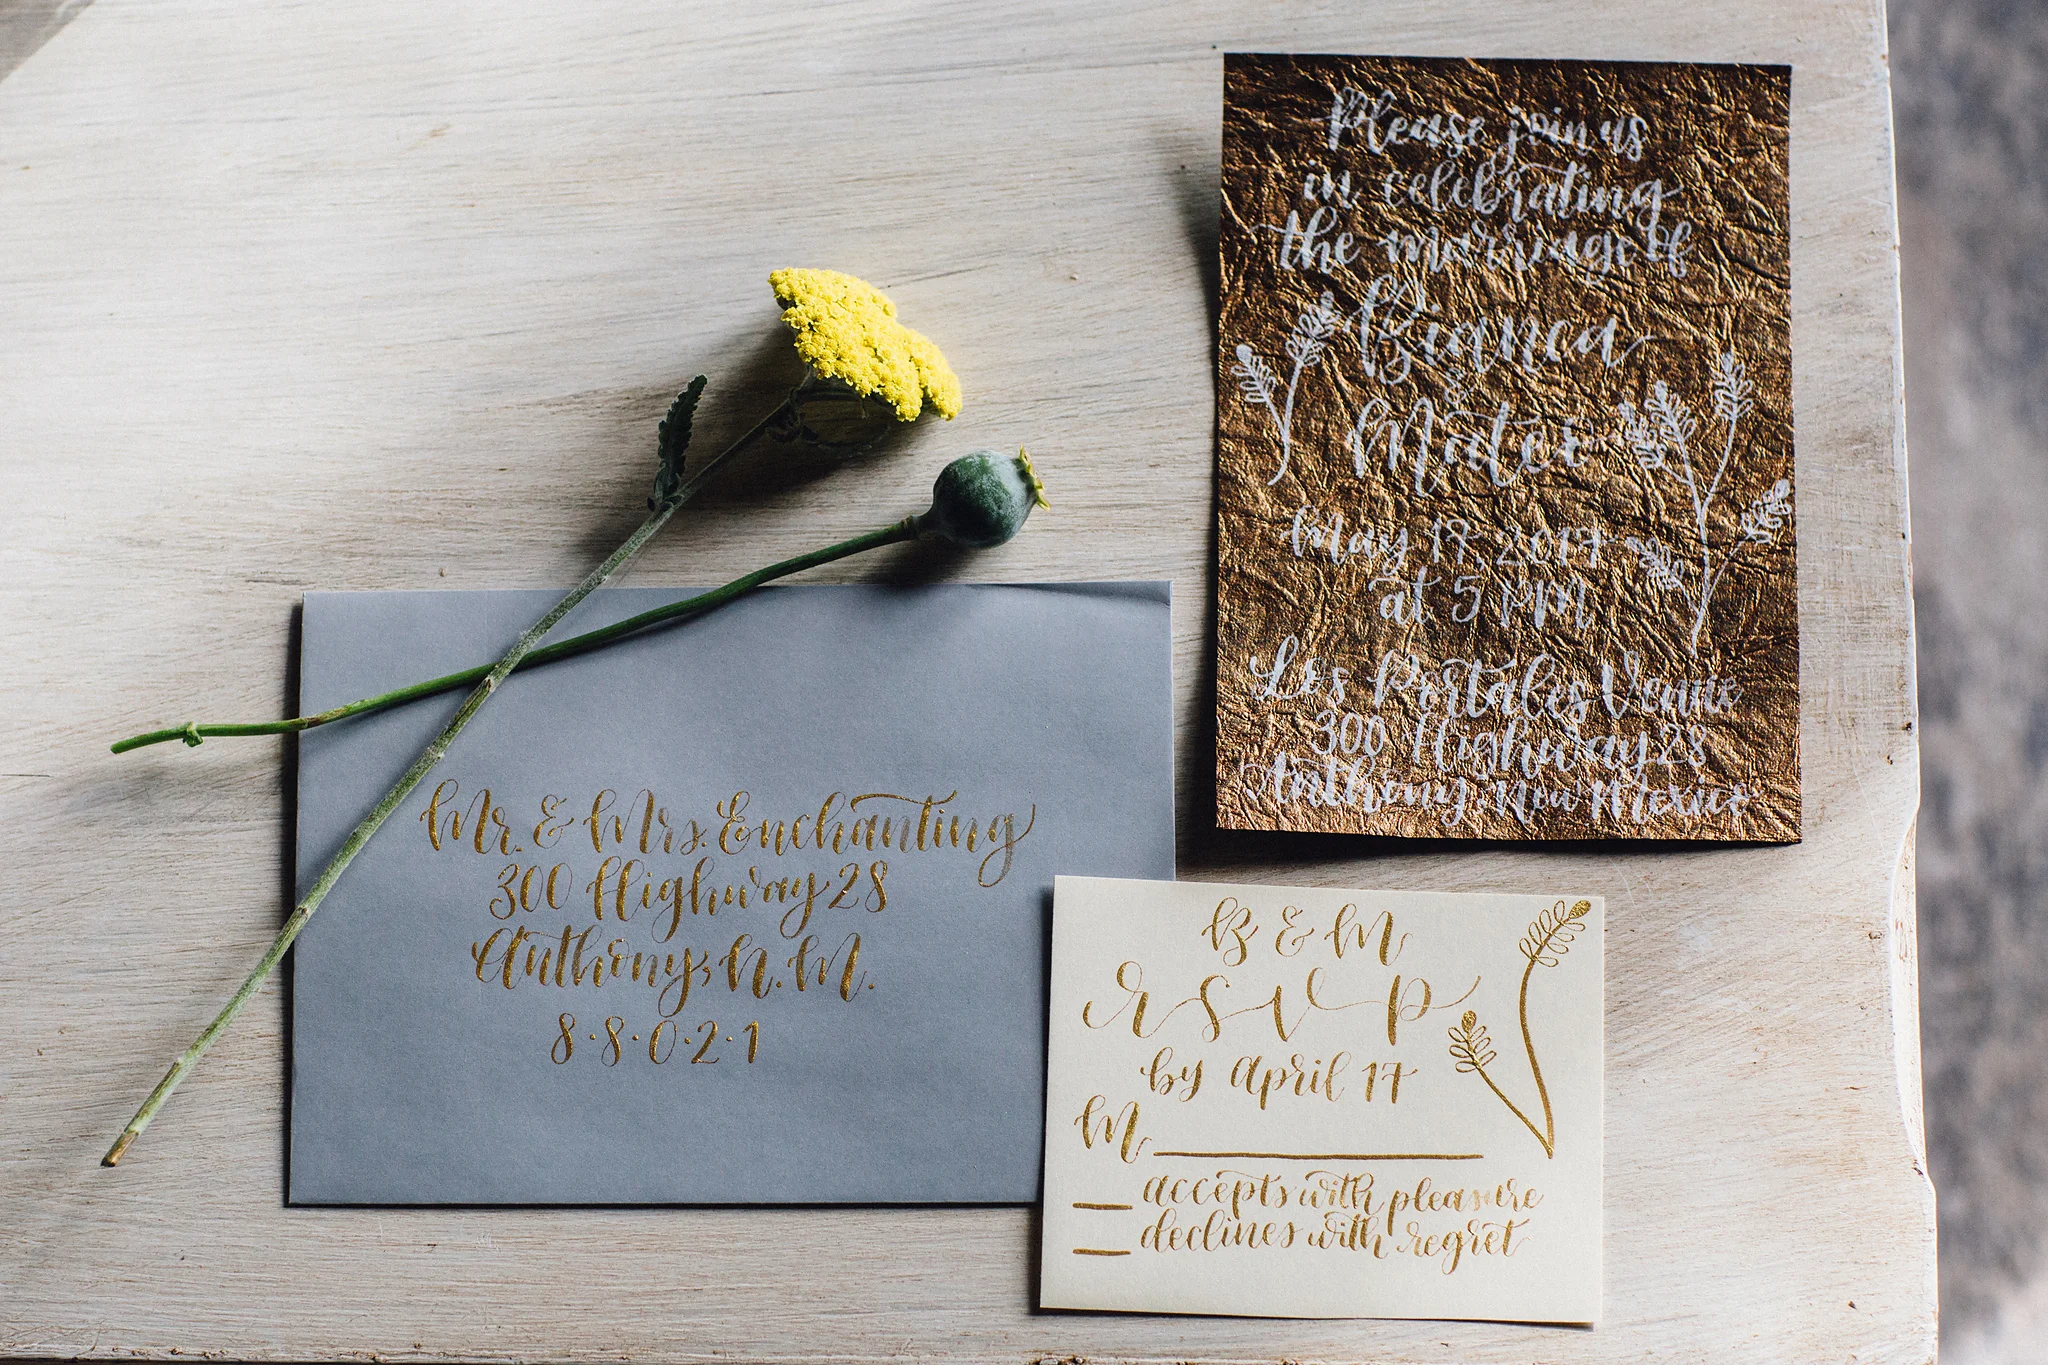 Please join us
in celebrating
the marriage of
Bianca
&
Mateo
May 17, 2017
at 5 PM
Los Portales Venue
300 Highway 28
Anthony, New Mexico
Mr. & Mrs. Enchanting
300 Highway 28
Anthony, N.M.
8·8·0·2·1
B & M
RSVP
by april 17
M
accepts with pleasure
declines with regret